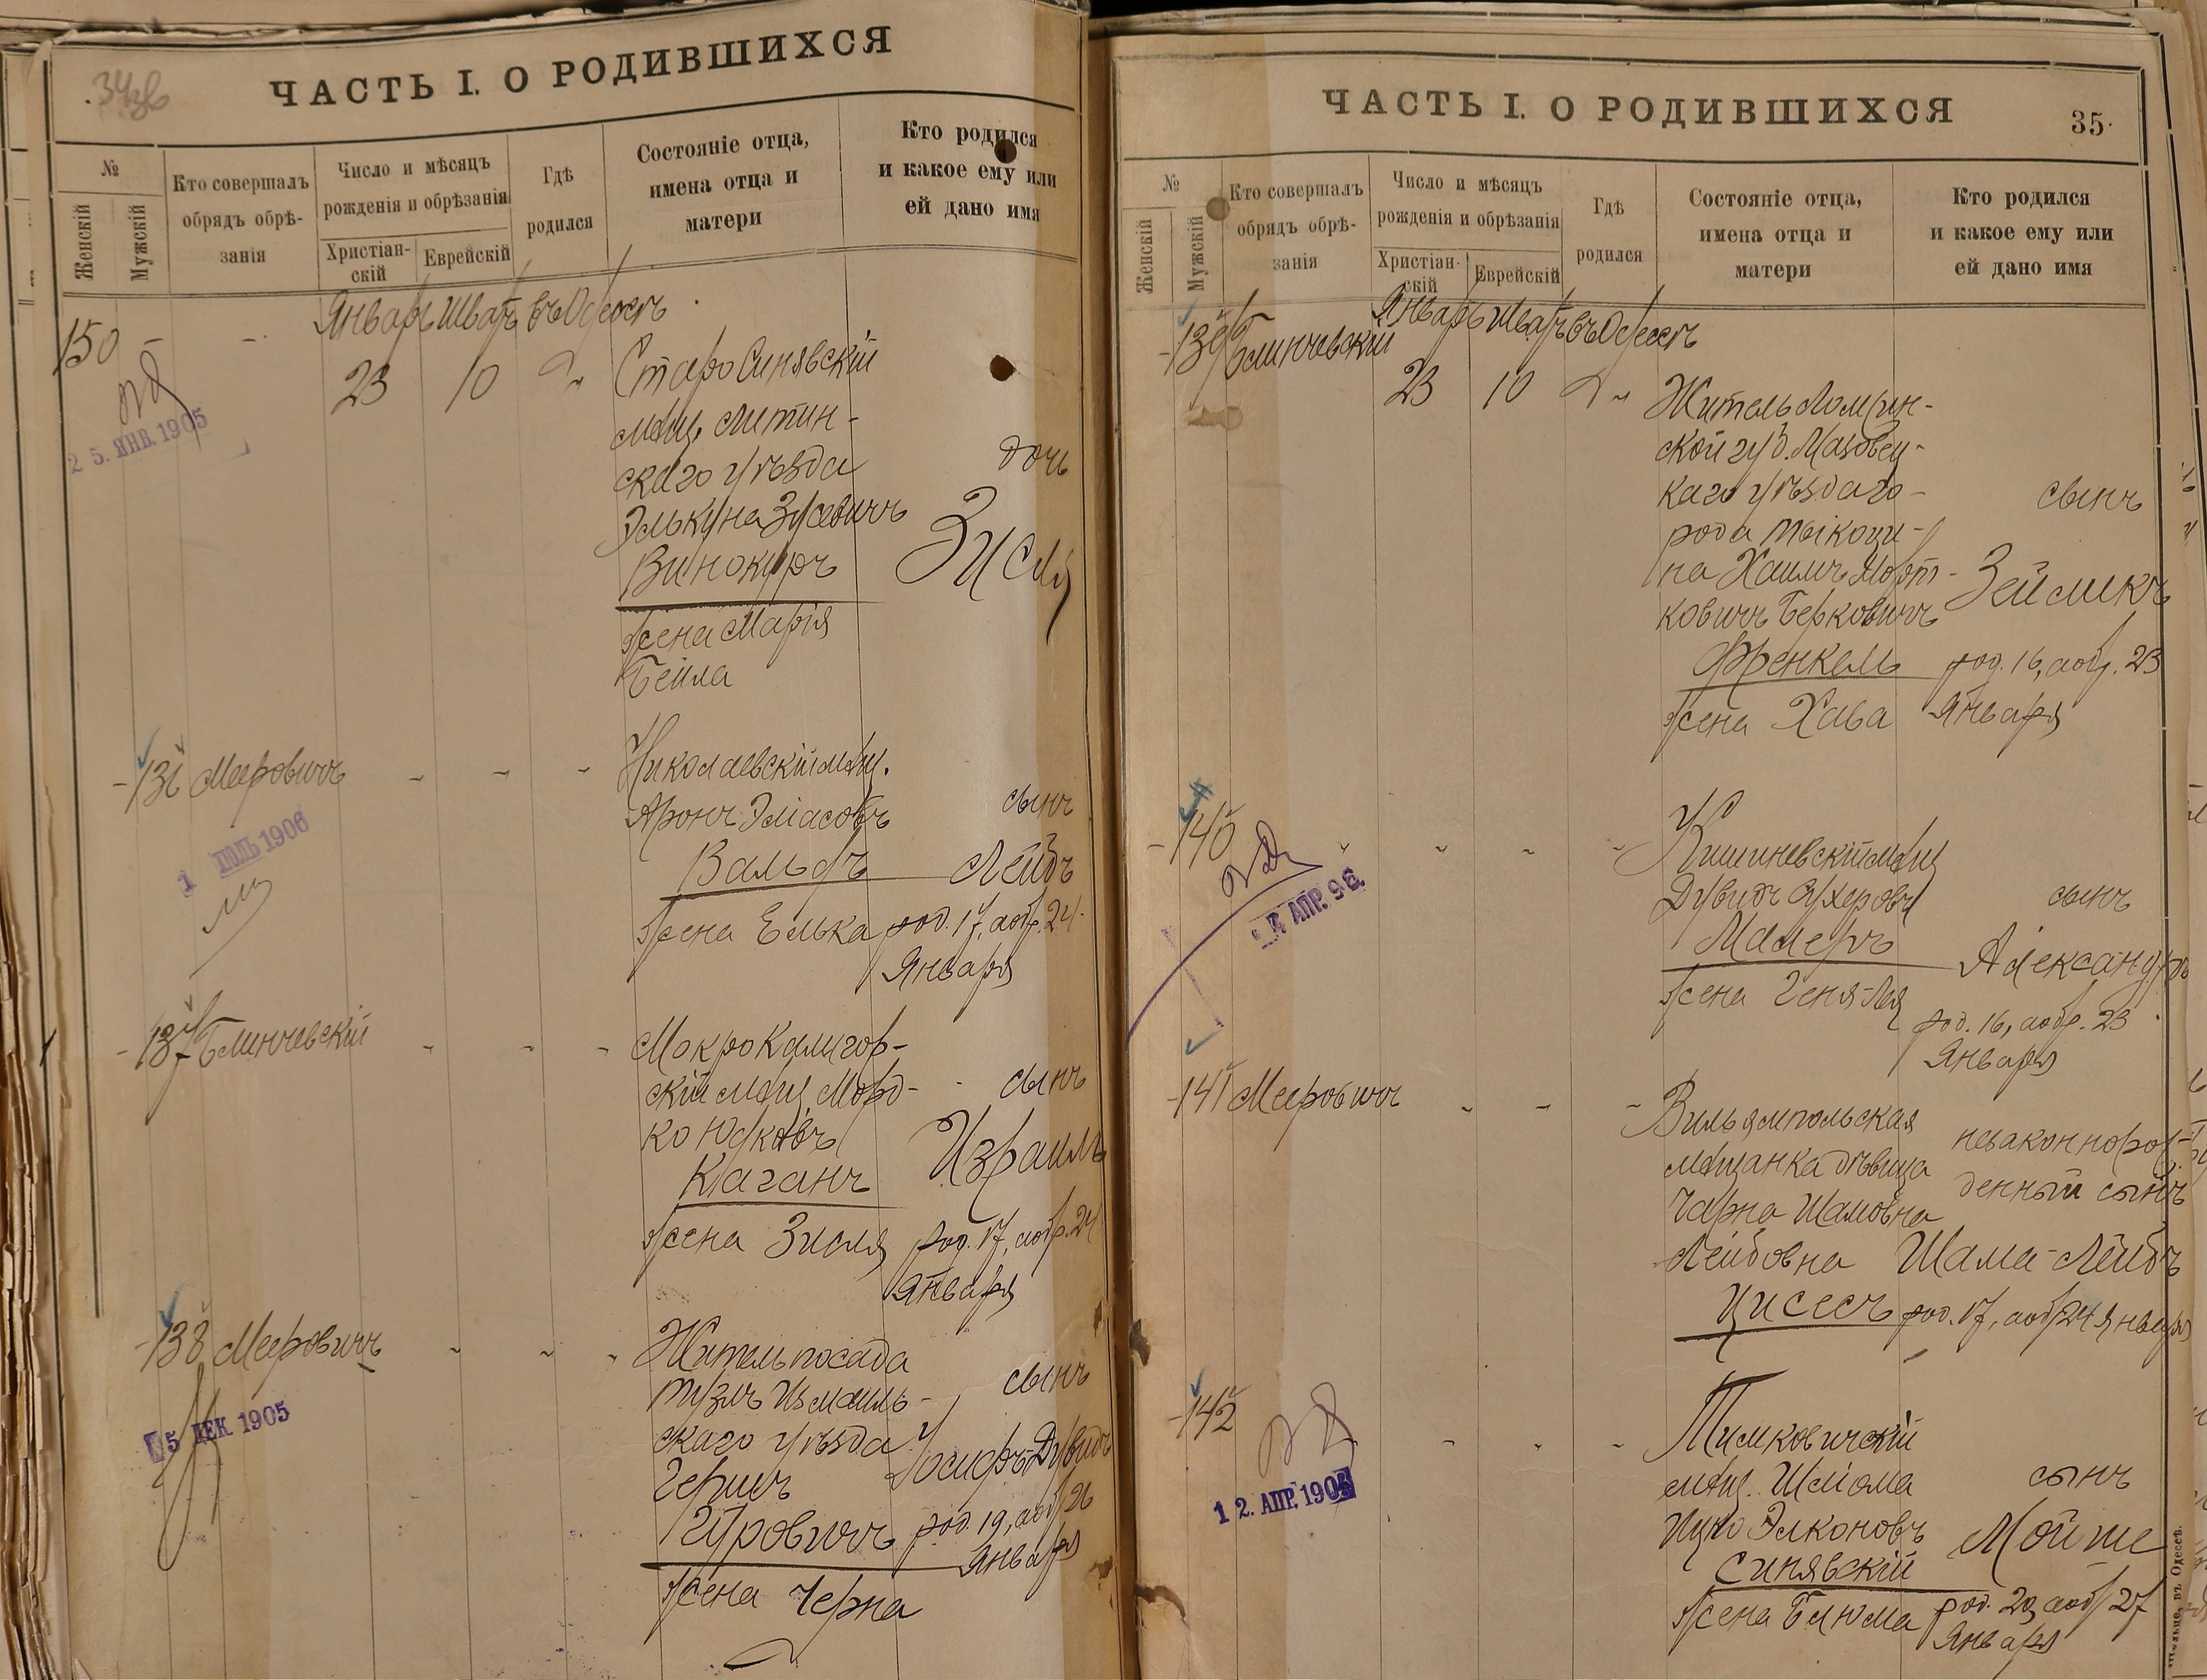 34об
ЧАСТЬ I. О РОДИВШИХСЯ
№
Женскій
Мужскій
Кто совершалъ
обрядъ обрѣ-
занія
Число и мѣсяцъ
рожденія и обрѣзанія
Христіан-
скій
Еврейскій
Гдѣ
родился
Состояніе отца,
имена отца и
матери
Кто родился
и какое ему или
ей дано имя
Январь Шватъ въ Одессѣ
150 - -
23 10
Старо Синявскій
мѣщ. Литин-
скаго уѣзда
Элькуна Зусевичъ
Винокуръ
жена Марія
Бейла
дочь
Зисля
25. ЯНВ. 1905
- 136 Мееровичъ
Николаевскій мѣщ.
Аронъ Эліасовъ
Вальдъ
жена Елька
сынъ
Лейбъ
род. 17, а обр. 24
Января
1 ІЮЛЬ 1906
- 137 Блинчевскій
Мокро Калигор-
скій мѣщ. Морд-
ко Юдковъ
Каганъ
жена Зисля
сынъ
Израиль
род. 17, а обр. 24
Января
- 138 Мееровичъ
Житель посада
Тузлъ Измаиль-
скаго уѣзда
Гершъ
жена Черна
сынъ
Іосифъ-Дувидъ
род. 19, а обр. 26
Января
5 ДЕК. 1905
ЧАСТЬ I. О РОДИВШИХСЯ
35.
№
Женскій
Мужскій
Кто совершалъ
обрядъ обрѣ-
занія
Число и мѣсяцъ
рожденія и обрѣзанія
Христіан-
скій
Еврейскій
Гдѣ
родился
Состояніе отца,
имена отца и
матери
Кто родился
и какое ему или
ей дано имя
Январь Шватъ въ Одессѣ
- 139 Блинчевскій
23 10
Житель Ломжин-
ской губ. Мазовец-
каго уѣзда го-
рода Тыкоци-
на Хаимъ Морт-
ковичъ Берковичъ
Френкель
жена Хава
сынъ
Зеймикъ
род. 16, а обр. 23
Января
- 140
Кишиневскій мѣщ
Дувидъ Сухеровъ
Малеръ
жена Геня-Лея
сынъ
Александръ
род. 16, а обр. 23
Января
4 АПР. 96.
- 141 Мееровичъ
Вильямпольская
мѣщанка дѣвица
Чарна Шамовна
Лейбовна
Цисесъ
незаконнорож-
денный сынъ
Шама-Лейбъ
род. 17, а обр 24 Января
- 142
Тимковичскій
мѣщ. Шлома
Ицко Элконовъ
Синявскій
жена Блюма
сынъ
Мойше
род. 20, а обр 27
Января
12. АПР. 190
въ Одессѣ.